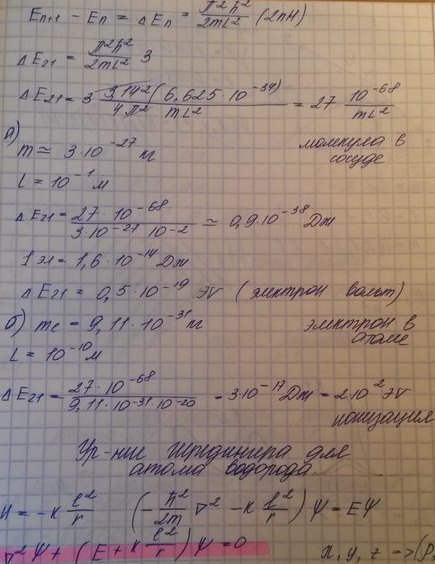 En+1 − En = ΔEn = π²ħ²/2mL² (2n+1)
ΔE21 = π²ħ²/2mL² 3
ΔE21 = 3 3,14²(6,625·10⁻³⁴)/4π² mL² = 27 10⁻⁶⁸/mL²
а)
m ≃ 3·10⁻²⁷ кг молекула в сосуде
L = 10⁻¹ м
ΔE21 = 27·10⁻⁶⁸/3·10⁻²⁷ 10⁻² ≃ 0,9·10⁻³⁸ Дж
1 эл = 1,6·10⁻¹⁹ Дж
ΔE21 = 0,5·10⁻¹⁹ эV (электрон вольт)
б) me = 9,11·10⁻³¹ кг электрон в атоме
L = 10⁻¹⁰ м
ΔE21 = 27·10⁻⁶⁸/9,11·10⁻³¹ 10⁻²⁰ = 3·10⁻¹⁷ Дж = 2·10² эV
ионизация
Ур-ние Шредингера для
атома водорода.
U = −к e²/r (−ħ²/2m ∇² − к e²/r) Ψ = EΨ
∇²Ψ + (E + к e²/r) Ψ = 0 x, y, z =>(ρ,